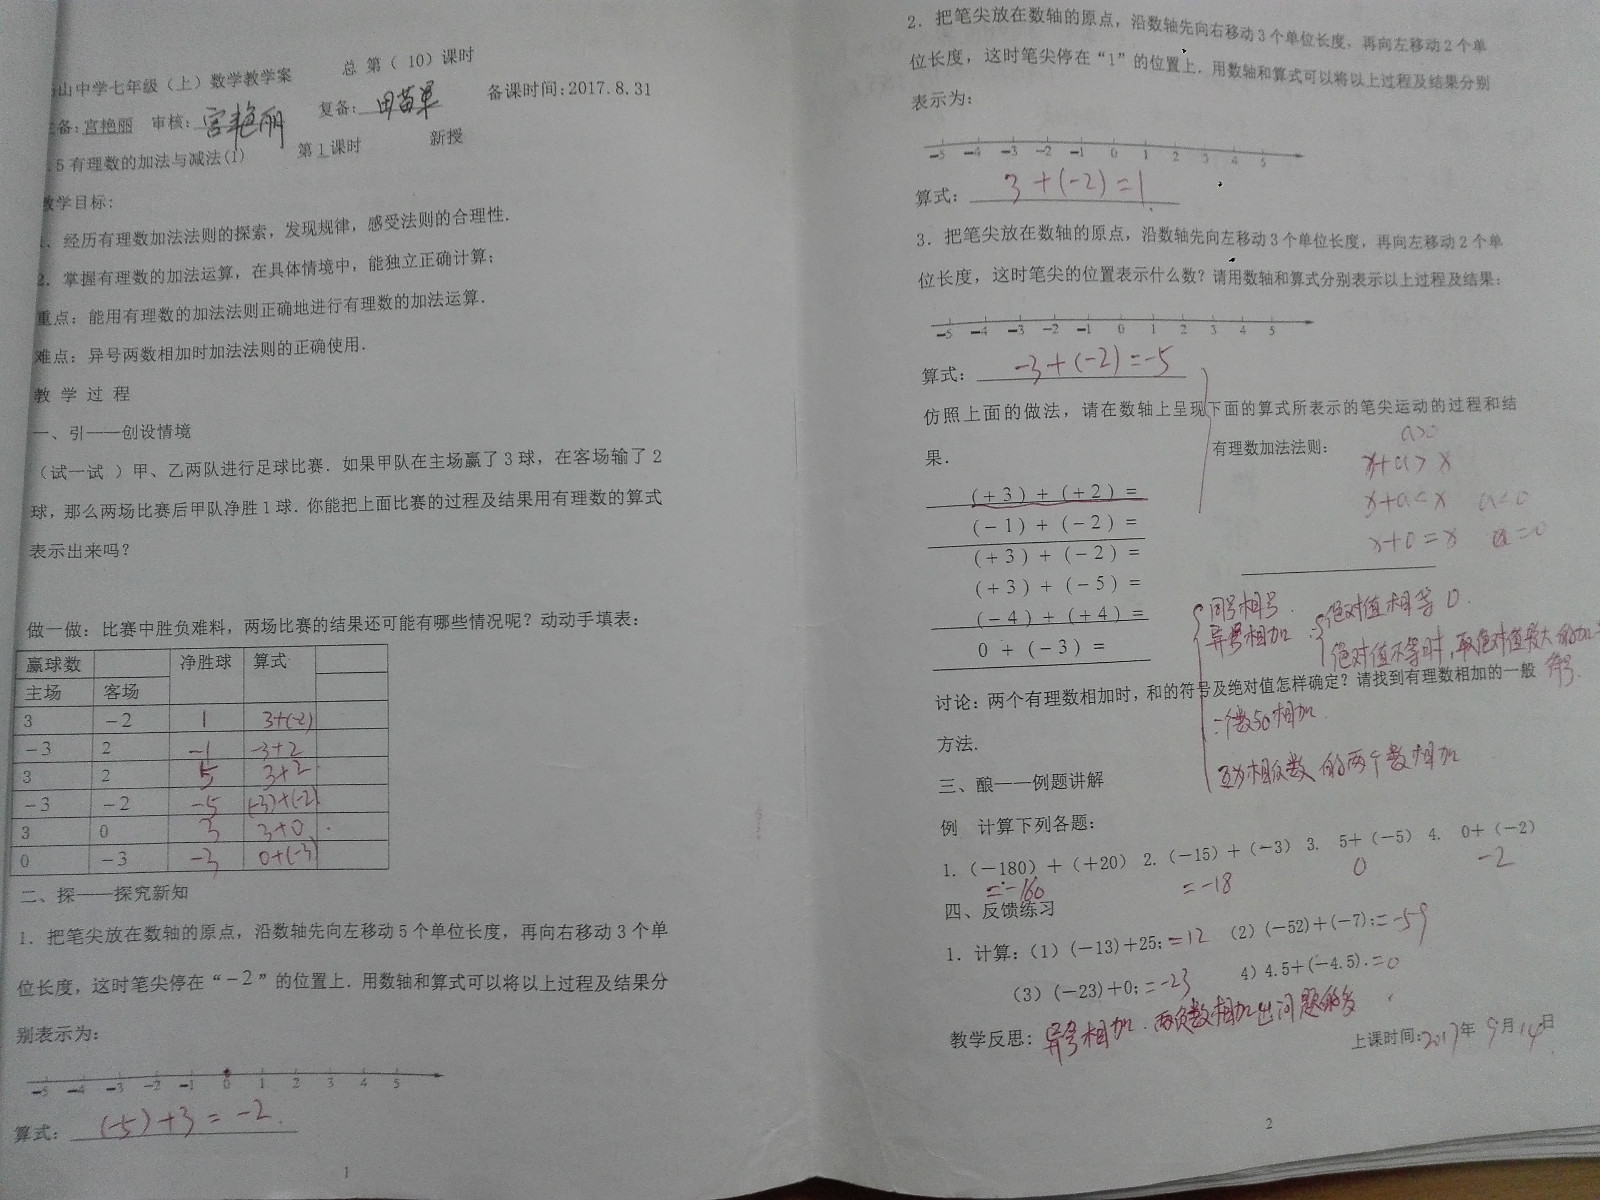 山中学七年级（上）数学教学案 总 第（ 10）课时
备：宫艳丽 审核：宫艳丽 复备：田苗果 备课时间：2017.8.31
.5 有理数的加法与减法(1) 第1课时 新授
教学目标：
、经历有理数加法法则的探索，发现规律，感受法则的合理性．
2．掌握有理数的加法运算，在具体情境中，能独立正确计算；
重点：能用有理数的加法法则正确地进行有理数的加法运算．
难点：异号两数相加时加法法则的正确使用．
教 学 过 程
一、引——创设情境
（试一试 ）甲、乙两队进行足球比赛．如果甲队在主场赢了3球，在客场输了2
球，那么两场比赛后甲队净胜1球．你能把上面比赛的过程及结果用有理数的算式
表示出来吗？
做一做：比赛中胜负难料，两场比赛的结果还可能有哪些情况呢？动动手填表：
赢球数 净胜球 算式
主场 客场
3 －2 1 3+(-2)
－3 2 -1 -3+2
3 2 5 3+2
－3 －2 -5 (-3)+(-2)
3 0 3 3+0
0 －3 -3 0+(-3)
二、探——探究新知
1．把笔尖放在数轴的原点，沿数轴先向左移动5个单位长度，再向右移动3个单
位长度，这时笔尖停在“－2”的位置上．用数轴和算式可以将以上过程及结果分
别表示为：
-5 -4 -3 -2 -1 0 1 2 3 4 5
算式： (-5)+3=-2
1
2．把笔尖放在数轴的原点，沿数轴先向右移动3个单位长度，再向左移动2个单
位长度，这时笔尖停在“1”的位置上．用数轴和算式可以将以上过程及结果分别
表示为：
-5 -4 -3 -2 -1 0 1 2 3 4 5
算式： 3+(-2)=1
3．把笔尖放在数轴的原点，沿数轴先向左移动3个单位长度，再向左移动2个单
位长度，这时笔尖的位置表示什么数？请用数轴和算式分别表示以上过程及结果：
-5 -4 -3 -2 -1 0 1 2 3 4 5
算式： -3+(-2)=-5
仿照上面的做法，请在数轴上呈现下面的算式所表示的笔尖运动的过程和结
果．
有理数加法法则：
a>0
x+a>x
x+a<x a<0
x+0=x a=0
(＋3)＋(＋2)＝
(－1)＋(－2)＝
(＋3)＋(－2)＝
(＋3)＋(－5)＝
(－4)＋(＋4)＝
0 ＋(－3)＝
同号相号
异号相加 绝对值相等 0.
绝对值不等时，取绝对值较大的加
符号.
讨论：两个有理数相加时，和的符号及绝对值怎样确定？请找到有理数相加的一般
方法．
一个数与0相加
互为相反数的两个数相加
三、酿——例题讲解
例 计算下列各题：
1.（－180）＋（＋20） 2.（－15）＋（－3） 3. 5＋（－5） 4. 0＋（－2）
=-160 =-18 0 -2
四、反馈练习
1．计算：（1）(－13)+25；=12 （2）(－52)+(－7)；=-59
（3）(－23)+0；=-23 4）4.5+(－4.5).=0
教学反思：异号相加．两负数相加出问题的多
上课时间:2017年9月14日
2